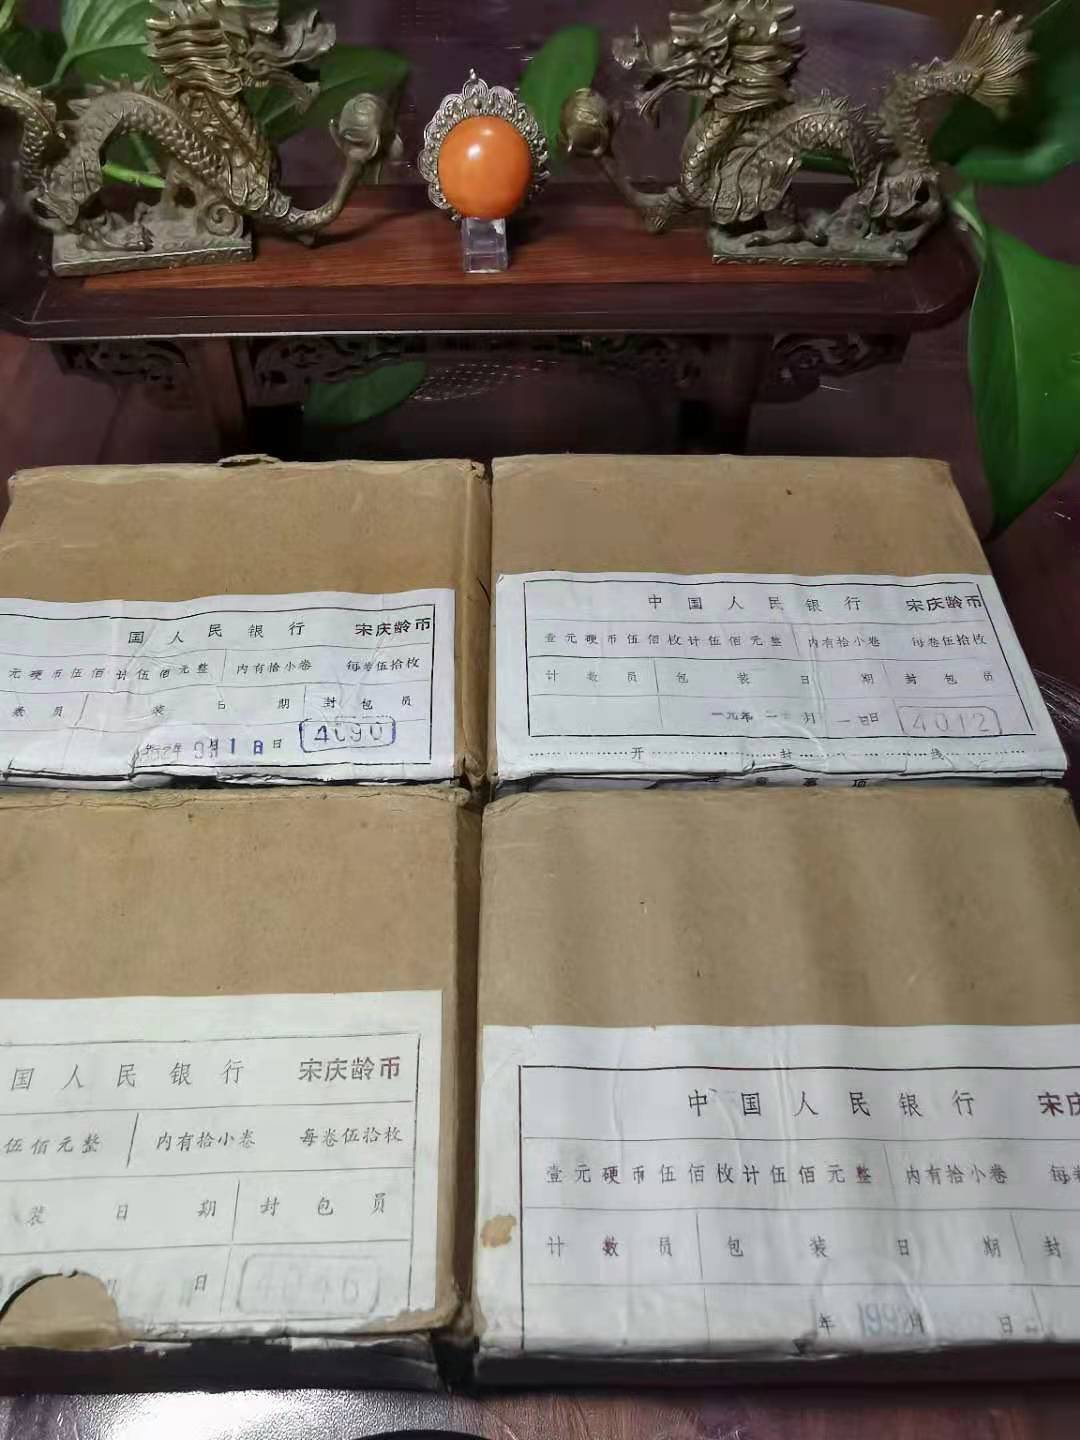 国人民银行 宋庆龄币
元硬币伍佰计伍佰元整 内有拾小卷 每卷伍拾枚
数员 装日期 封包员
年 月1日日 4090
中国人民银行 宋庆龄币
壹元硬币伍佰枚计伍佰元整 内有拾小卷 每卷伍拾枚
计数员 包装日期 封包员
一九年一 月一日日 4012
开封线
意事项
国人民银行 宋庆龄币
伍佰元整 内有拾小卷 每卷伍拾枚
装日期 封包员
月 日 4046
中国人民银行 宋庆
壹元硬币伍佰枚计伍佰元整 内有拾小卷 每卷
计数员 包装日期 封
年 199 月 日